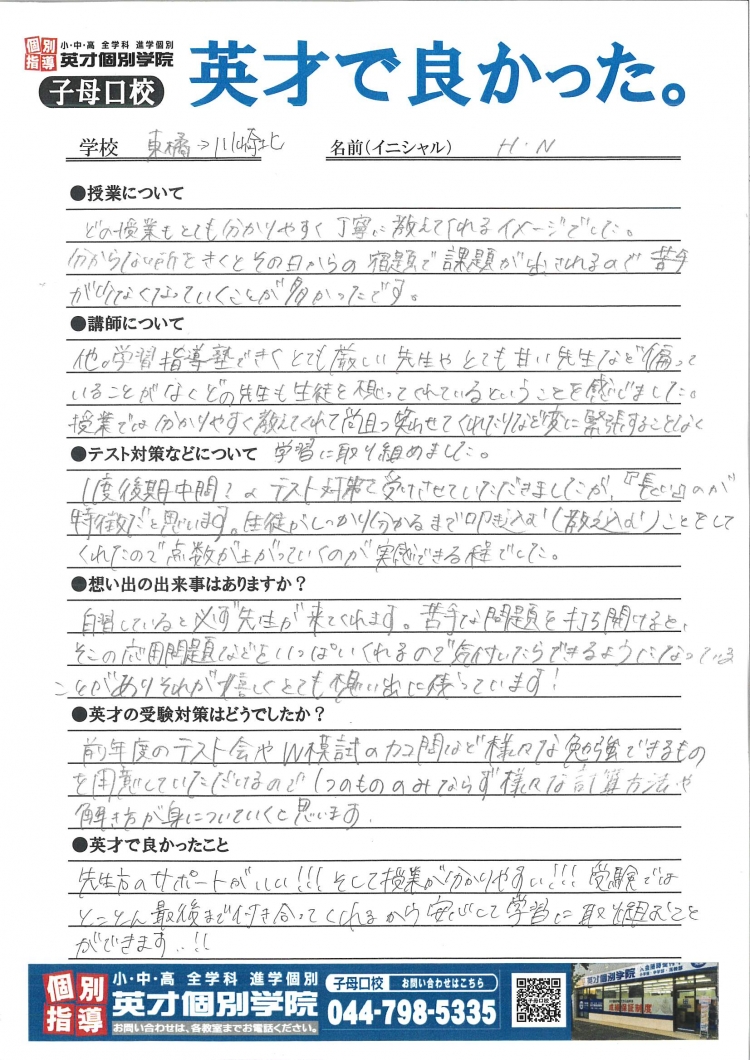 個別指導
小・中・高 全学科 進学個別
英才個別学院
子母口校
英才で良かった。
学校 東橘→川崎北 名前(イニシャル) H・N
●授業について
どの授業もとても分かりやすく丁寧に教えてくれるイメージでした。
分からない所をきくとその日からの宿題で課題が出されるので苦手
が少なくなっていくことが多かったです。
●講師について
他の学習指導塾できくとても厳しい先生やとても甘い先生など偏って
いることがなくどの先生も生徒を想ってくれているということを感じました。
授業では分かりやすく教えてくれて尚且つ笑わせてくれたりなど変に緊張することなく
●テスト対策などについて 学習に取り組めました。
1度後期中間?のテスト対策で受けさせていただきましたが、『長い』のが
特徴だと思います。生徒がしっかり分かるまで叩き込む(教え込む)ことをして
くれたので点数が上がっていくのが実感できる程でした。
●想い出の出来事はありますか?
自習していると必ず先生が来てくれます。苦手な問題を打ち開けると、
そこの応用問題などをいっぱいくれるので気付いたらできるようになっている
ことがありそれが嬉しくとても想い出に残っています!
●英才の受験対策はどうでしたか?
前年度のテスト会やW模試のカコ問など様々な勉強できるもの
を用意していただけるので1つのもののみならず様々な計算方法や
解き方が身についていくと思います。
●英才で良かったこと
先生方のサポートがいい!!!そして授業が分かりやすい!!!受験では
とことん最後まで付き合ってくれるから安心して学習に取り組むこと
ができます..!!
個別指導
小・中・高 全学科 進学個別
英才個別学院
お問い合わせは、各教室までお電話ください。
子母口校 お問い合わせはこちら
044-798-5335
子母口校
英才個別学院
成績保証制度